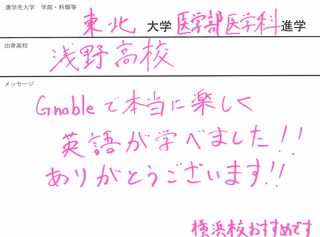 進学先大学 学部・科類等
東北大学医学部医学科進学
出身高校
浅野高校
メッセージ
Gnobleで本当に楽しく
英語が学べました!!
ありがとうございます!!
横浜校おすすめです